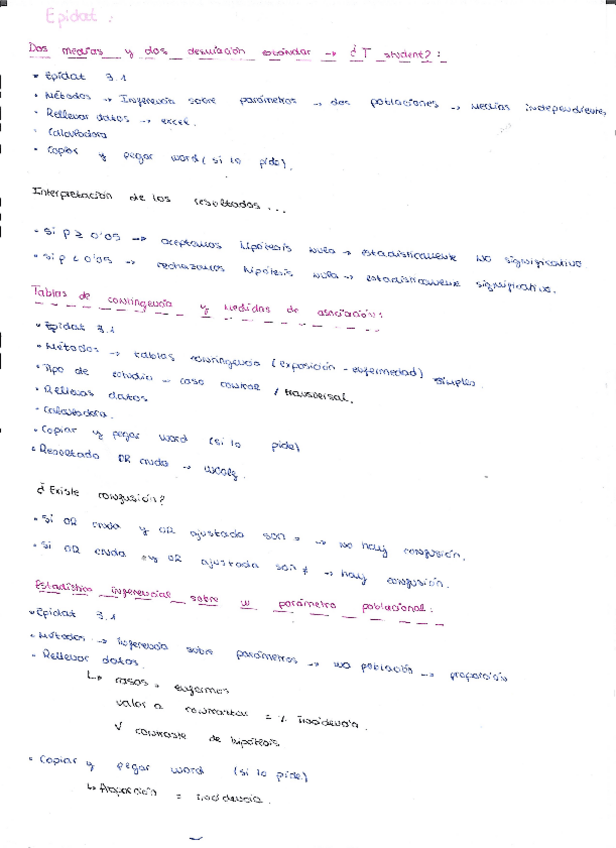 Epidat :
Dos medias y dos desviación estándar → ¿T student? :
• Epidat 3.1
• Métodos → Inferencia sobre parámetros → dos poblaciones → Medias independientes
• Rellenar datos → excel.
• Calculadora
• Copiar y pegar word (si lo pide).
Interpretación de los resultados ...
• Si p ≥ 0'05 → aceptamos hipótesis nula → estadísticamente NO significativo
• Si p < 0'05 → rechazamos hipótesis nula → estadísticamente significativo.
Tablas de contingencia y medidas de asociación:
• Epidat 3.1
• Métodos → tablas contingencia (exposición - enfermedad) simples.
• Tipo de estudio - caso control / transversal.
• Rellenas datos
• Calculadora.
• Copiar y pegar word (si lo pide)
• Resultado OR cruda → woolf.
¿Existe confusión?
• Si OR cruda y OR ajustada son = → no hay confusión.
• Si OR cruda y OR ajustada son ≠ → hay confusión.
Estadístico inferencial sobre un parámetro poblacional:
• Epidat 3.1
• Métodos → inferencia sobre parámetros → una población → proporción
• Rellenar datos.
↳ casos = enfermos
valor a contrastar = % incidencia.
√ contraste de hipótesis
• Copiar y pegar word (si lo pide)
↳ Proporción = incidencia.